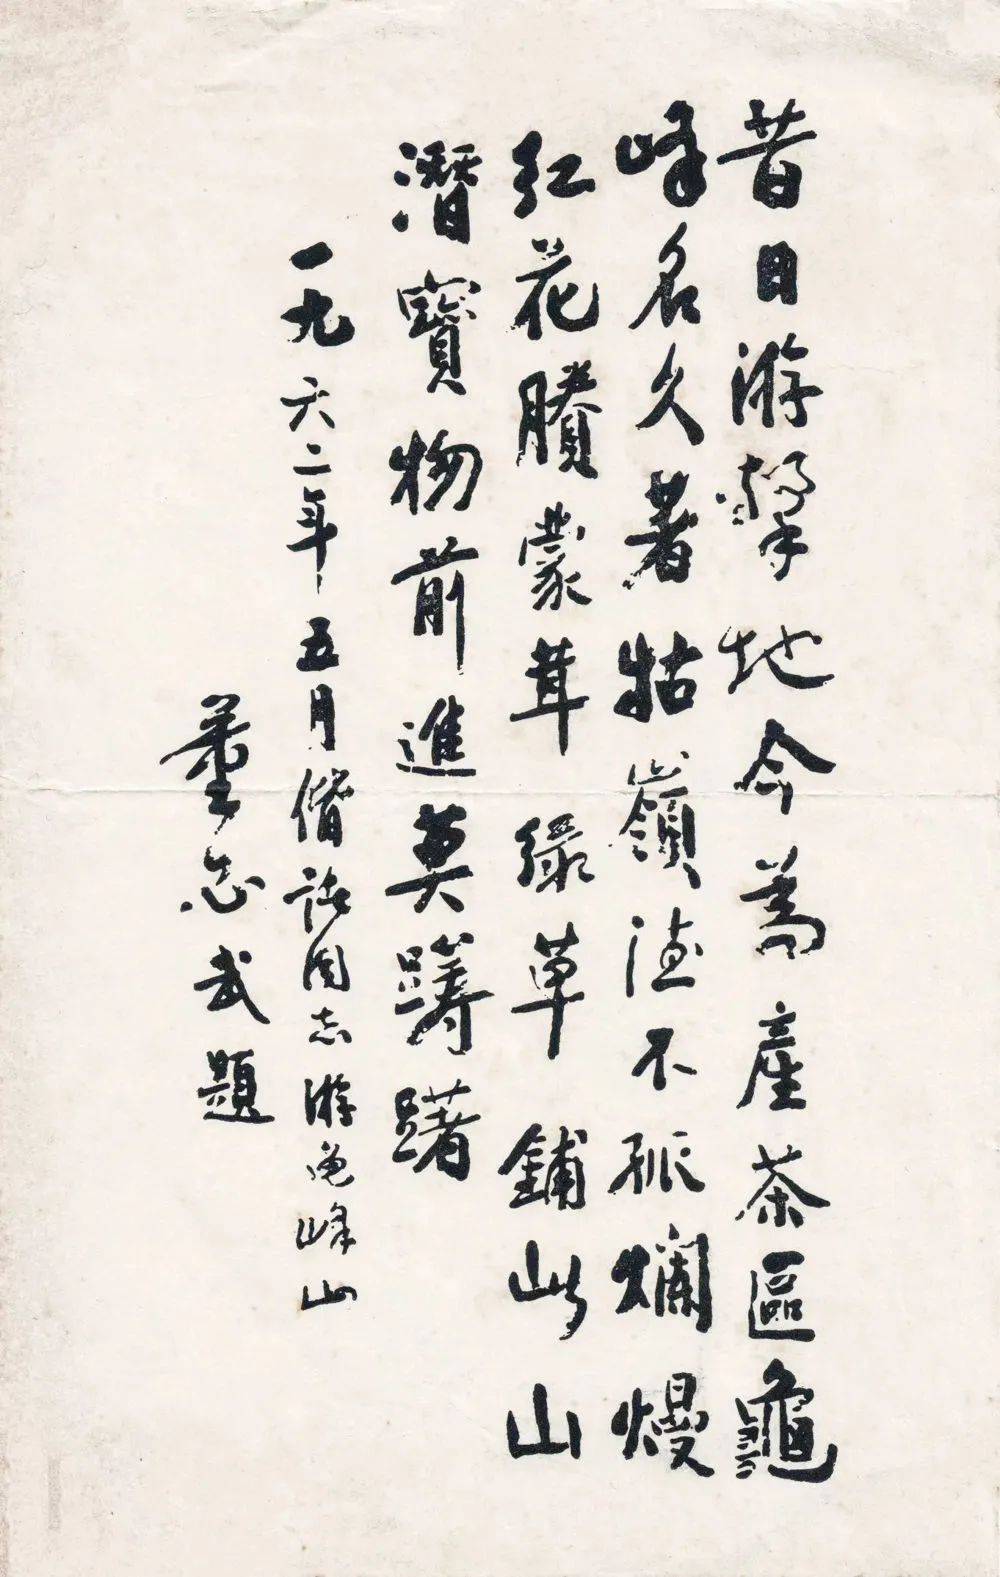 昔日游擊地今為產茶區龜
峰名久著牯嶺德不孤爛熳
紅花賸蒙茸緑草鋪此山
潛寶物前進莫躊躇
一九六二年五月偕諸同志游龟峰山
董必武題